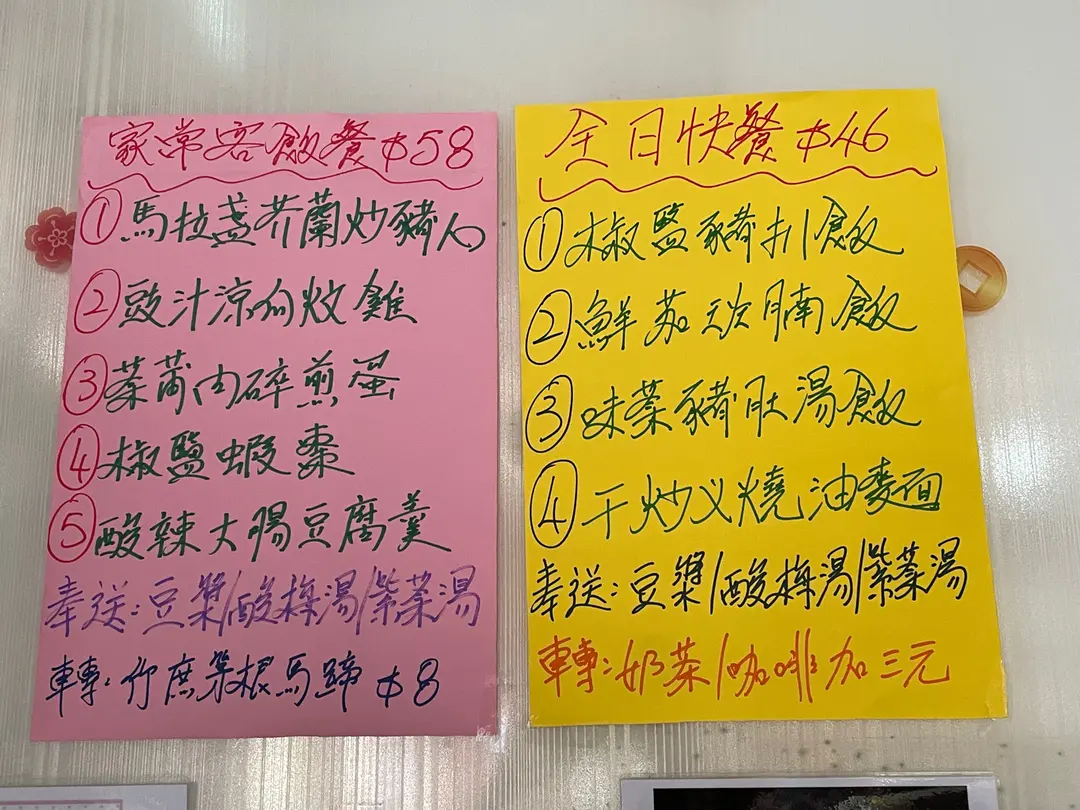 家常客飯餐$58
① 馬拉盞芥蘭炒豬
② 豉汁涼瓜炆雞
③ 菜莆肉碎煎蛋
④ 椒鹽蝦棗
⑤ 酸辣大腸豆腐羹
奉送:豆漿/酸梅湯/紫菜湯
轉:竹庶茅根馬蹄 $8
全日快餐$46
① 椒鹽豬扒飯
② 鮮茄牛腩飯
③ 味菜豬肚湯飯
④ 干炒义燒油麵
奉送:豆漿/酸梅湯/紫菜湯
轉:奶茶/咖啡加三元